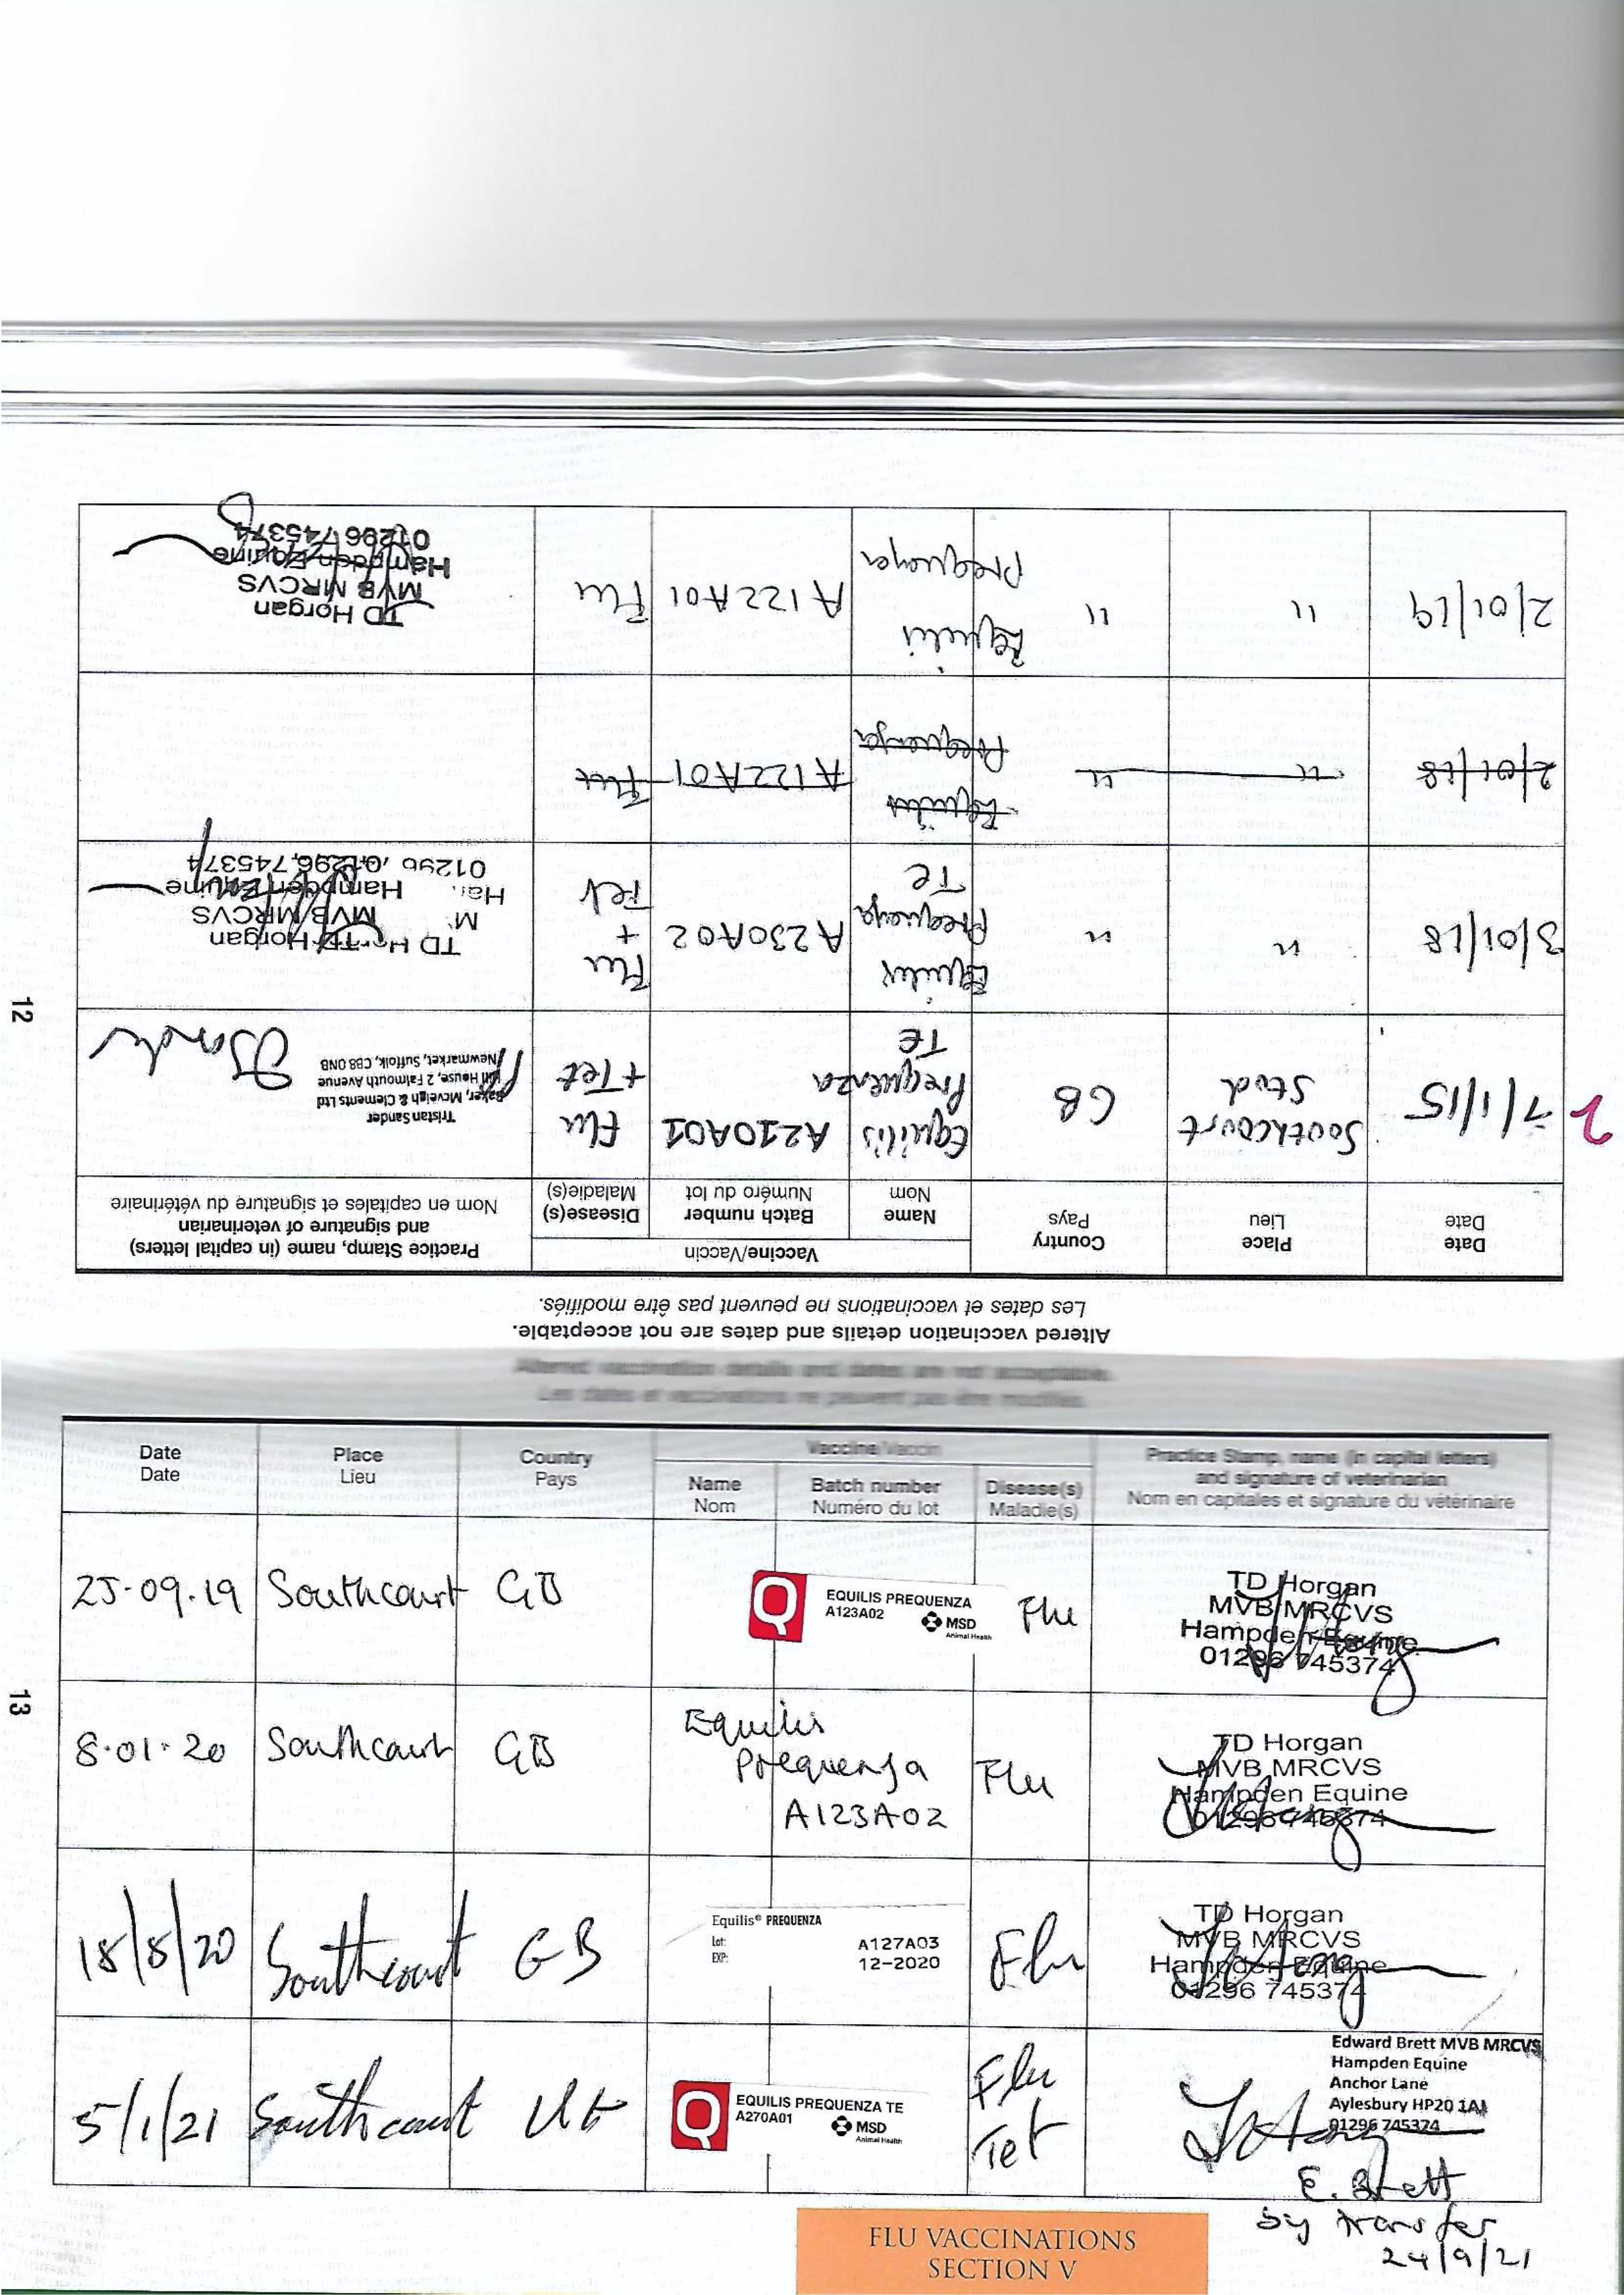 Altered vaccination details and dates are not acceptable.
Les dates et vaccinations ne peuvent pas être modifiés.
Date
Date
Place
Lieu
Country
Pays
Vaccine/Vaccin
Name
Nom
Batch number
Numéro du lot
Disease(s)
Maladie(s)
Practice Stamp, name (in capital letters)
and signature of veterinarian
Nom en capitales et signature du vétérinaire
2
7/1/15
Southcourt
Stud
GB
Equilis
Prequenza
TE
A210A01
Flu
+ Tet
Tristan Sander
Baker, Mcveigh & Clements Ltd
House, 2 Falmouth Avenue
Newmarket, Suffolk, CB8 0NB
3/01/18
"
"
Equilis
Prequenza
Te
A230A02
Flu
+
Tet
TD Horgan
MVB MRCVS
Hampden Equine
01296 745374
2/01/18
"
"
Equilis
Prequenza
A122A01
Flu
2/01/19
"
"
Equilis
Prequenza
A122A01
Flu
TD Horgan
MVB MRCVS
Hampden Equine
01296 745374
12
Altered vaccination details and dates are not acceptable.
Les dates et vaccinations ne peuvent pas être modifiés.
Date
Date
Place
Lieu
Country
Pays
Vaccine/Vaccin
Name
Nom
Batch number
Numéro du lot
Disease(s)
Maladie(s)
Practice Stamp, name (in capital letters)
and signature of veterinarian
Nom en capitales et signature du vétérinaire
25.09.19
Southcourt
GB
Q
EQUILIS PREQUENZA
A123A02
MSD
Animal Health
Flu
TD Horgan
MVB MRCVS
Hampden Equine
01296 745374
8.01.20
Southcourt
GB
Equilis
Prequenza
A123A02
Flu
TD Horgan
MVB MRCVS
Hampden Equine
01296 745374
18/8/20
Southcourt
GB
Equilis® PREQUENZA
Lot: A127A03
EXP: 12-2020
Flu
TD Horgan
MVB MRCVS
Hampden Equine
01296 745374
5/1/21
Southcourt
UK
Q
EQUILIS PREQUENZA TE
A270A01
MSD
Animal Health
Flu
Tet
Edward Brett MVB MRCVS
Hampden Equine
Anchor Lane
Aylesbury HP20 1AJ
01296 745374
E. Brett
by transfer
24/9/21
13
FLU VACCINATIONS
SECTION V